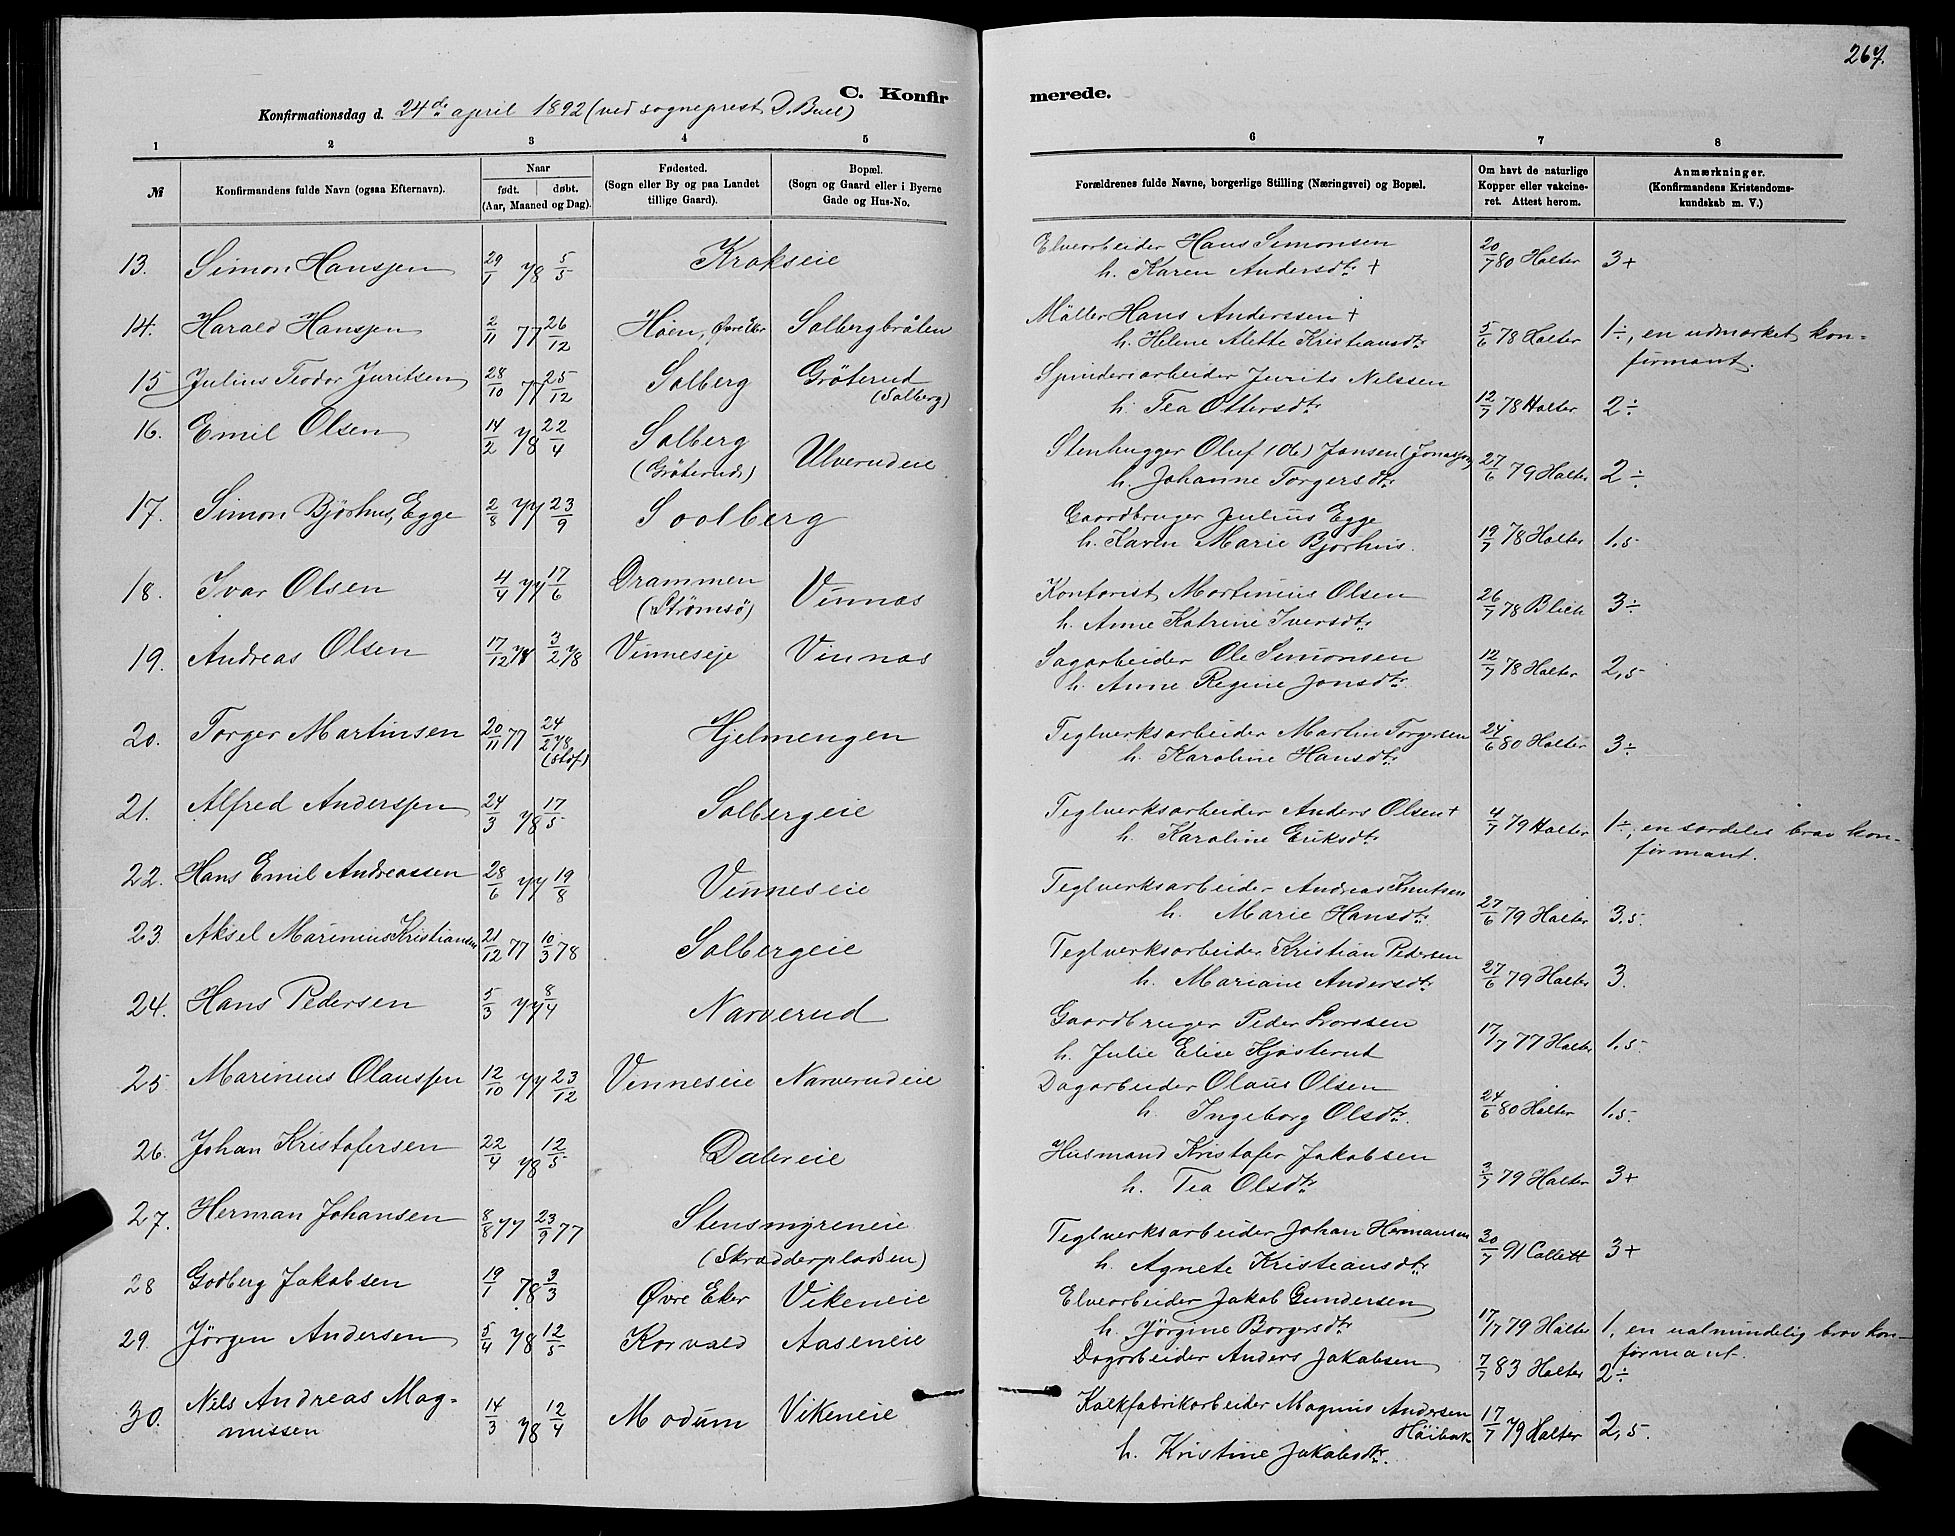 267.
C. Konfirmerede.
Konfirmationsdag d. 24de april 1892 (ved sogneprest D. Bull)
1 2 3 4 5 6 7 8
№
Konfirmandens fulde Navn (ogsaa Efternavn).
Naar
født. døbt.
(Aar, Maaned og Dag).
Fødested.
(Sogn eller By og paa Landet
tillige Gaard).
Bopæl.
(Sogn og Gaard eller i Byerne
Gade og Hus-No.
Forældrenes fulde Navne, borgerlige Stilling (Næringsvei) og Bopæl.
Om havt de naturlige
Kopper eller vakcine-
ret. Attest herom.
Anmærkninger.
(Konfirmandens Kristendoms-
kundskab m. V.)
13. Simon Hansjen 29/1 78 5/5 Krokseie Elvearbeider Hans Simonsen 20/7 80 Holter 3+
h. Karen Andersdtr +
14. Harald Hansjen 2/11 77 26/12 Höen, Øvre Eker Solbergbråten Möller Hans Anderssen + 5/6 78 Holter 1÷, en udmærket kon-
h. Helene Alette Kristiansdtr firmant.
15 Julius Teodor Juritsen 28/10 77 25/12 Solberg Gröterud Spinderiarbeider Jurits Nilssen
(Solberg)
h. Tea Ottersdtr 12/7 78 Holter 2÷
16. Emil Olsen 14/2 78 22/4 Solberg Ulverudeie Stenhugger Oluf (Ole) Jonsen (Jonasjen) 27/6 79 Holter 2÷
(Gröterud)
h. Johanne Torgersdtr
17. Simon Bjørhus, Egge 2/8 77 23/9 Soolberg Gaardbruger Julius Egge
h. Karen Marie Bjørhus. 19/7 78 Holter 1,5
18. Ivar Olsen 4/4 77 17/6 Drammen Vinnas Kontorist Martinius Olsen 26/7 78 Blich 3÷
(Strömsö)
h. Anne Katrine Iversdtr
19. Andreas Olsen 17/12 78 3/2 78 Vinneseje Vinnas Sagarbeider Ole Simonsen 12/7 78 Holter 2,5
h. Anne Regine Jonsdtr
20. Torger Martinsen 20/11 77 24/2 78 Hjelmengen Teglverksarbeider Martin Torgersen 24/6 80 Holter 3÷
h. Karoline Hansdtr
21. Alfred Andersjen 24/3 78 17/5 Solbergeie Teglverksarbeider Anders Olsen + 4/7 79 Holter 1÷, en særdeles brav kon-
h. Karoline Eriksdtr firmant.
22. Hans Emil Andreassen 28/6 77 19/8 Vinneseie Teglverksarbeider Andreas Knutsen
h. Marie Hansdtr 27/6 79 Holter 3.5.
23. Aksel Marinius Kristiansen 21/12 77 10/3 78 Solbergeie Teglverksarbeider Kristian Pedersen
h. Mariane Andersdtr 27/6 79 Holter 3.
24. Hans Pedersen 5/3 77 8/4 Narverud Gaardbruger Peder
h. Julie Elise Kjösterut 17/7 77 Holter 1,5.
25. Marinius Olausjen 12/10 77 23/12 Vinneseie Narverudeie Dagarbeider Olaus Olsen
h. Ingeborg Olsdtr. 24/6 80 Holter 1,5.
26. Johan Kristofersen 22/4 78 12/5 Dalereie Husmand Kristofer Jakobsen
h. Tea Olsdtr 3/7 79 Holter 3+
27. Herman Johansen 8/8 77 23/9 77 Stensmyreneie Teglverksarbeider Johan Hermansen 30/7 91 Collett 3+
(Skrædderpladsen)
h. Agnete Kristiansdtr
28 Godberg Jakobsen 19/1 78 3/3 Øvre Eker Vikeneie Elvearbeider Jakob Gundersen
h. Jörgine Borgersdtr 17/7 79 Holter 1, en ualmindelig brav kon-
firmant.
29. Jørgen Andersen 5/4 78 12/5 Korvald Aaseneie Dagarbeider Anders Jakobsen 7/7 83 Holter 2÷
30. Nils Andreas Mag- 14/3 78 12/4 Modum Vikeneie Kalkfabrikarbeider Magnus Andersen 17/7 79 Holter 2,5.
nussen Höibak
h. Kristine Jakobsdtr.